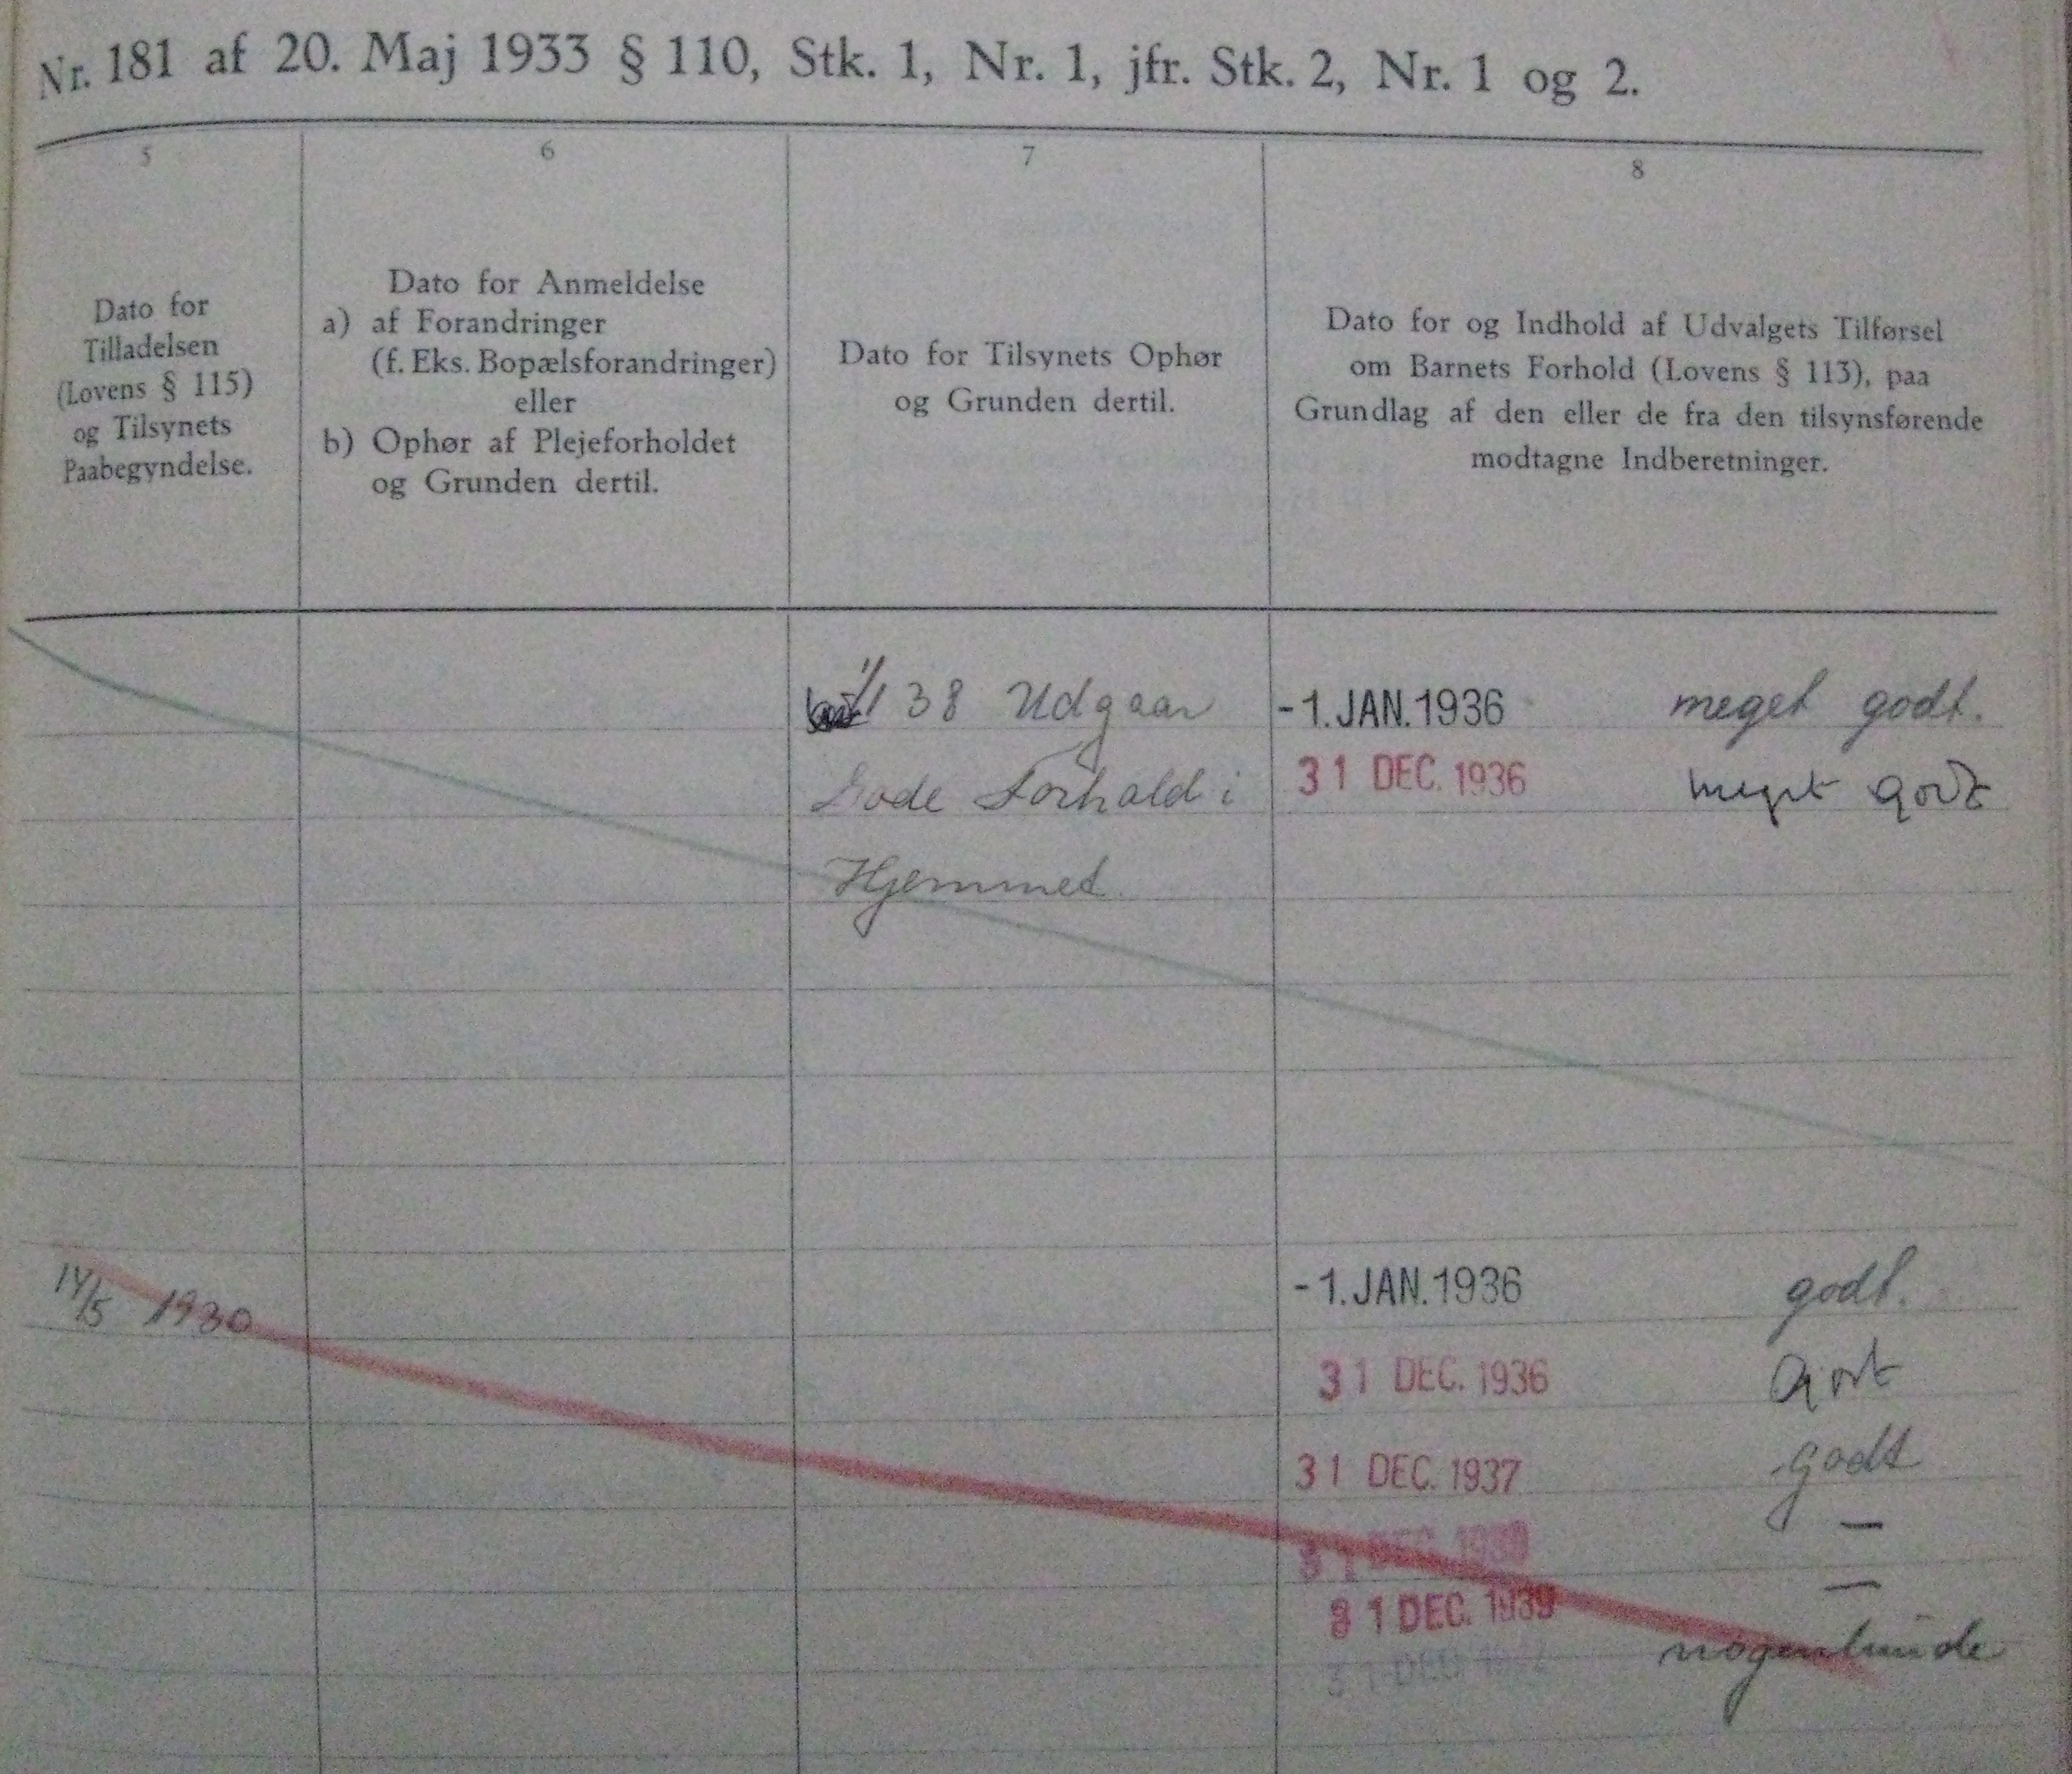 Nr. 181 af 20. Maj 1933 § 110, Stk. 1, Nr. 1, jfr. Stk. 2, Nr. 1 og 2.
5
Dato for
Tilladelsen
(Lovens § 115)
og Tilsynets
Paabegyndelse.
6
Dato for Anmeldelse
a) af Forandringer
(f. Eks. Bopælsforandringer)
eller
b) Ophør af Plejeforholdet
og Grunden dertil.
7
Dato for Tilsynets Ophør
og Grunden dertil.
8
Dato for og Indhold af Udvalgets Tilførsel
om Barnets Forhold (Lovens § 113), paa
Grundlag af den eller de fra den tilsynsførende
modtagne Indberetninger.
1/1 38 Udgaar
Gode Forhold i
Hjemmet.
-1. JAN. 1936 meget godt.
31 DEC. 1936 meget godt
14/5 1930
-1. JAN. 1936 godt.
31 DEC. 1936 Godt
31 DEC. 1937 Godt
31 DEC. —
31 DEC. 1939 —
31 DEC. nogenlunde